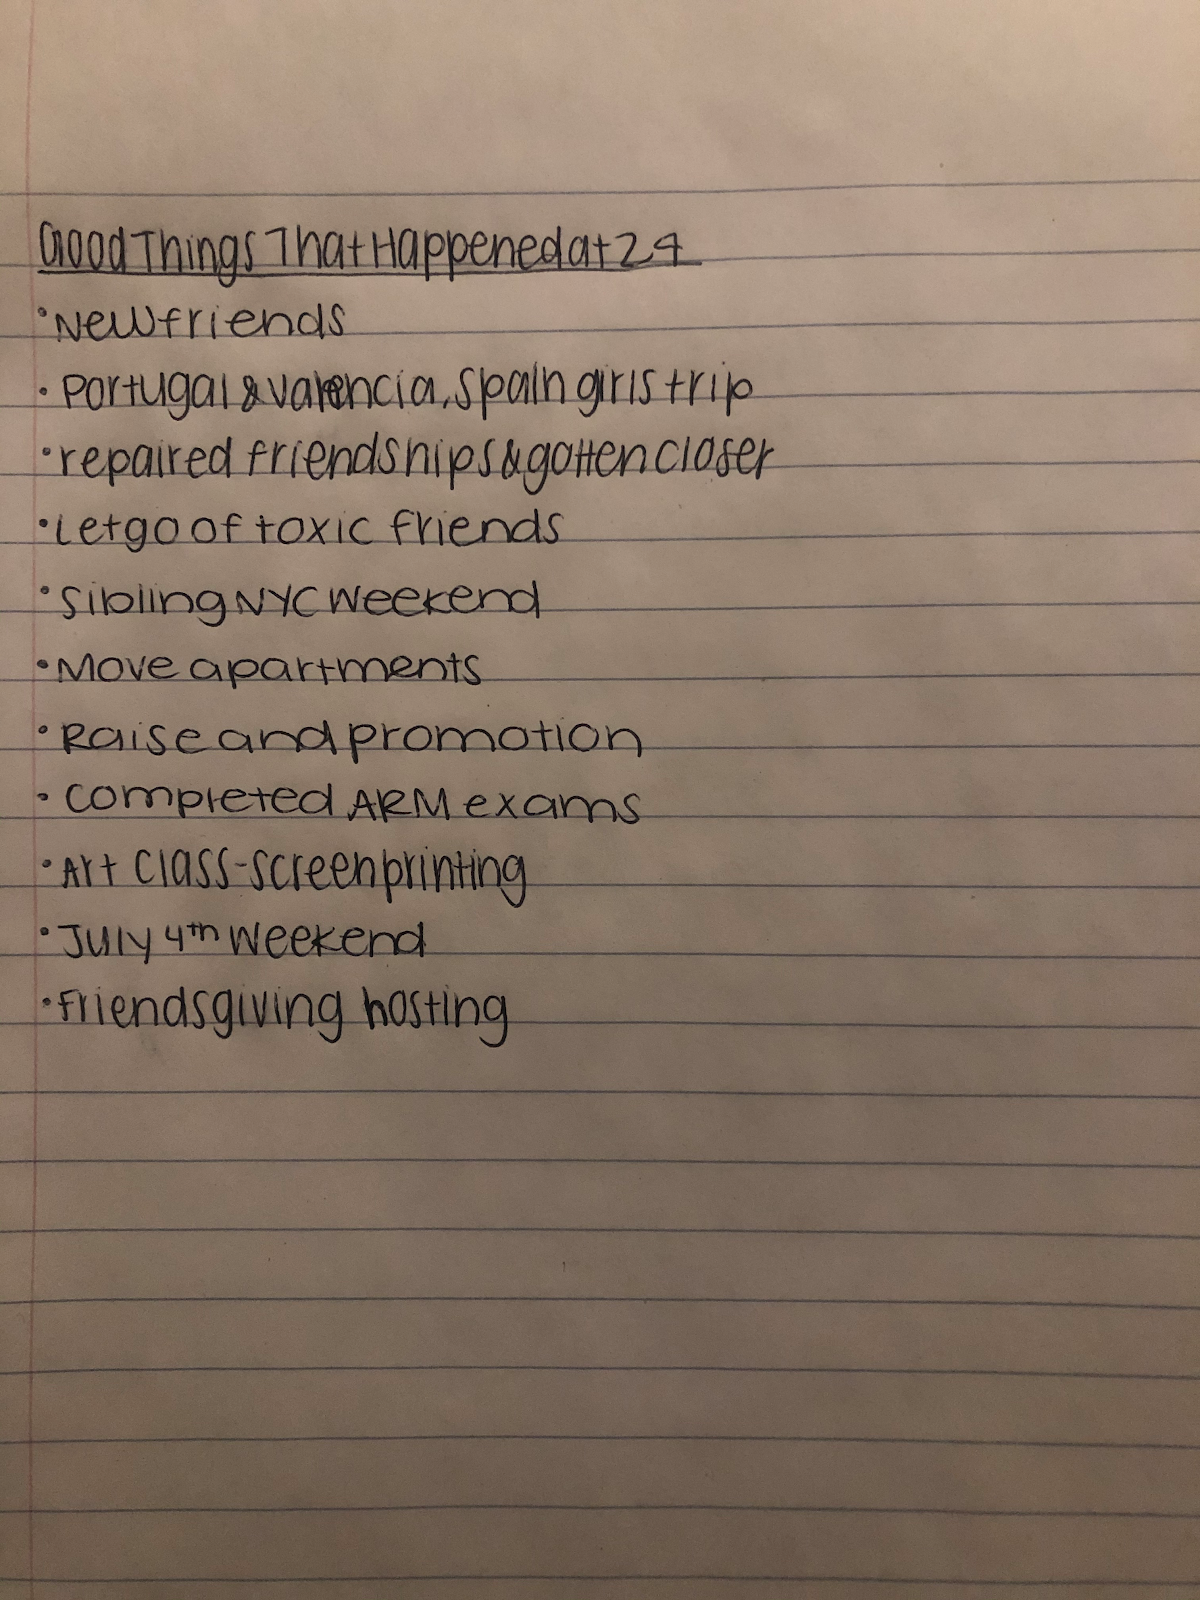 Good Things That Happened at 24
• New friends
• Portugal & Valencia, Spain girls trip
• repaired friendships & gotten closer
• Let go of toxic friends
• Sibling NYC Weekend
• Move apartments
• Raise and promotion
• Completed ARM exams
• Art Class - screenprinting
• July 4th Weekend
• Friendsgiving hosting